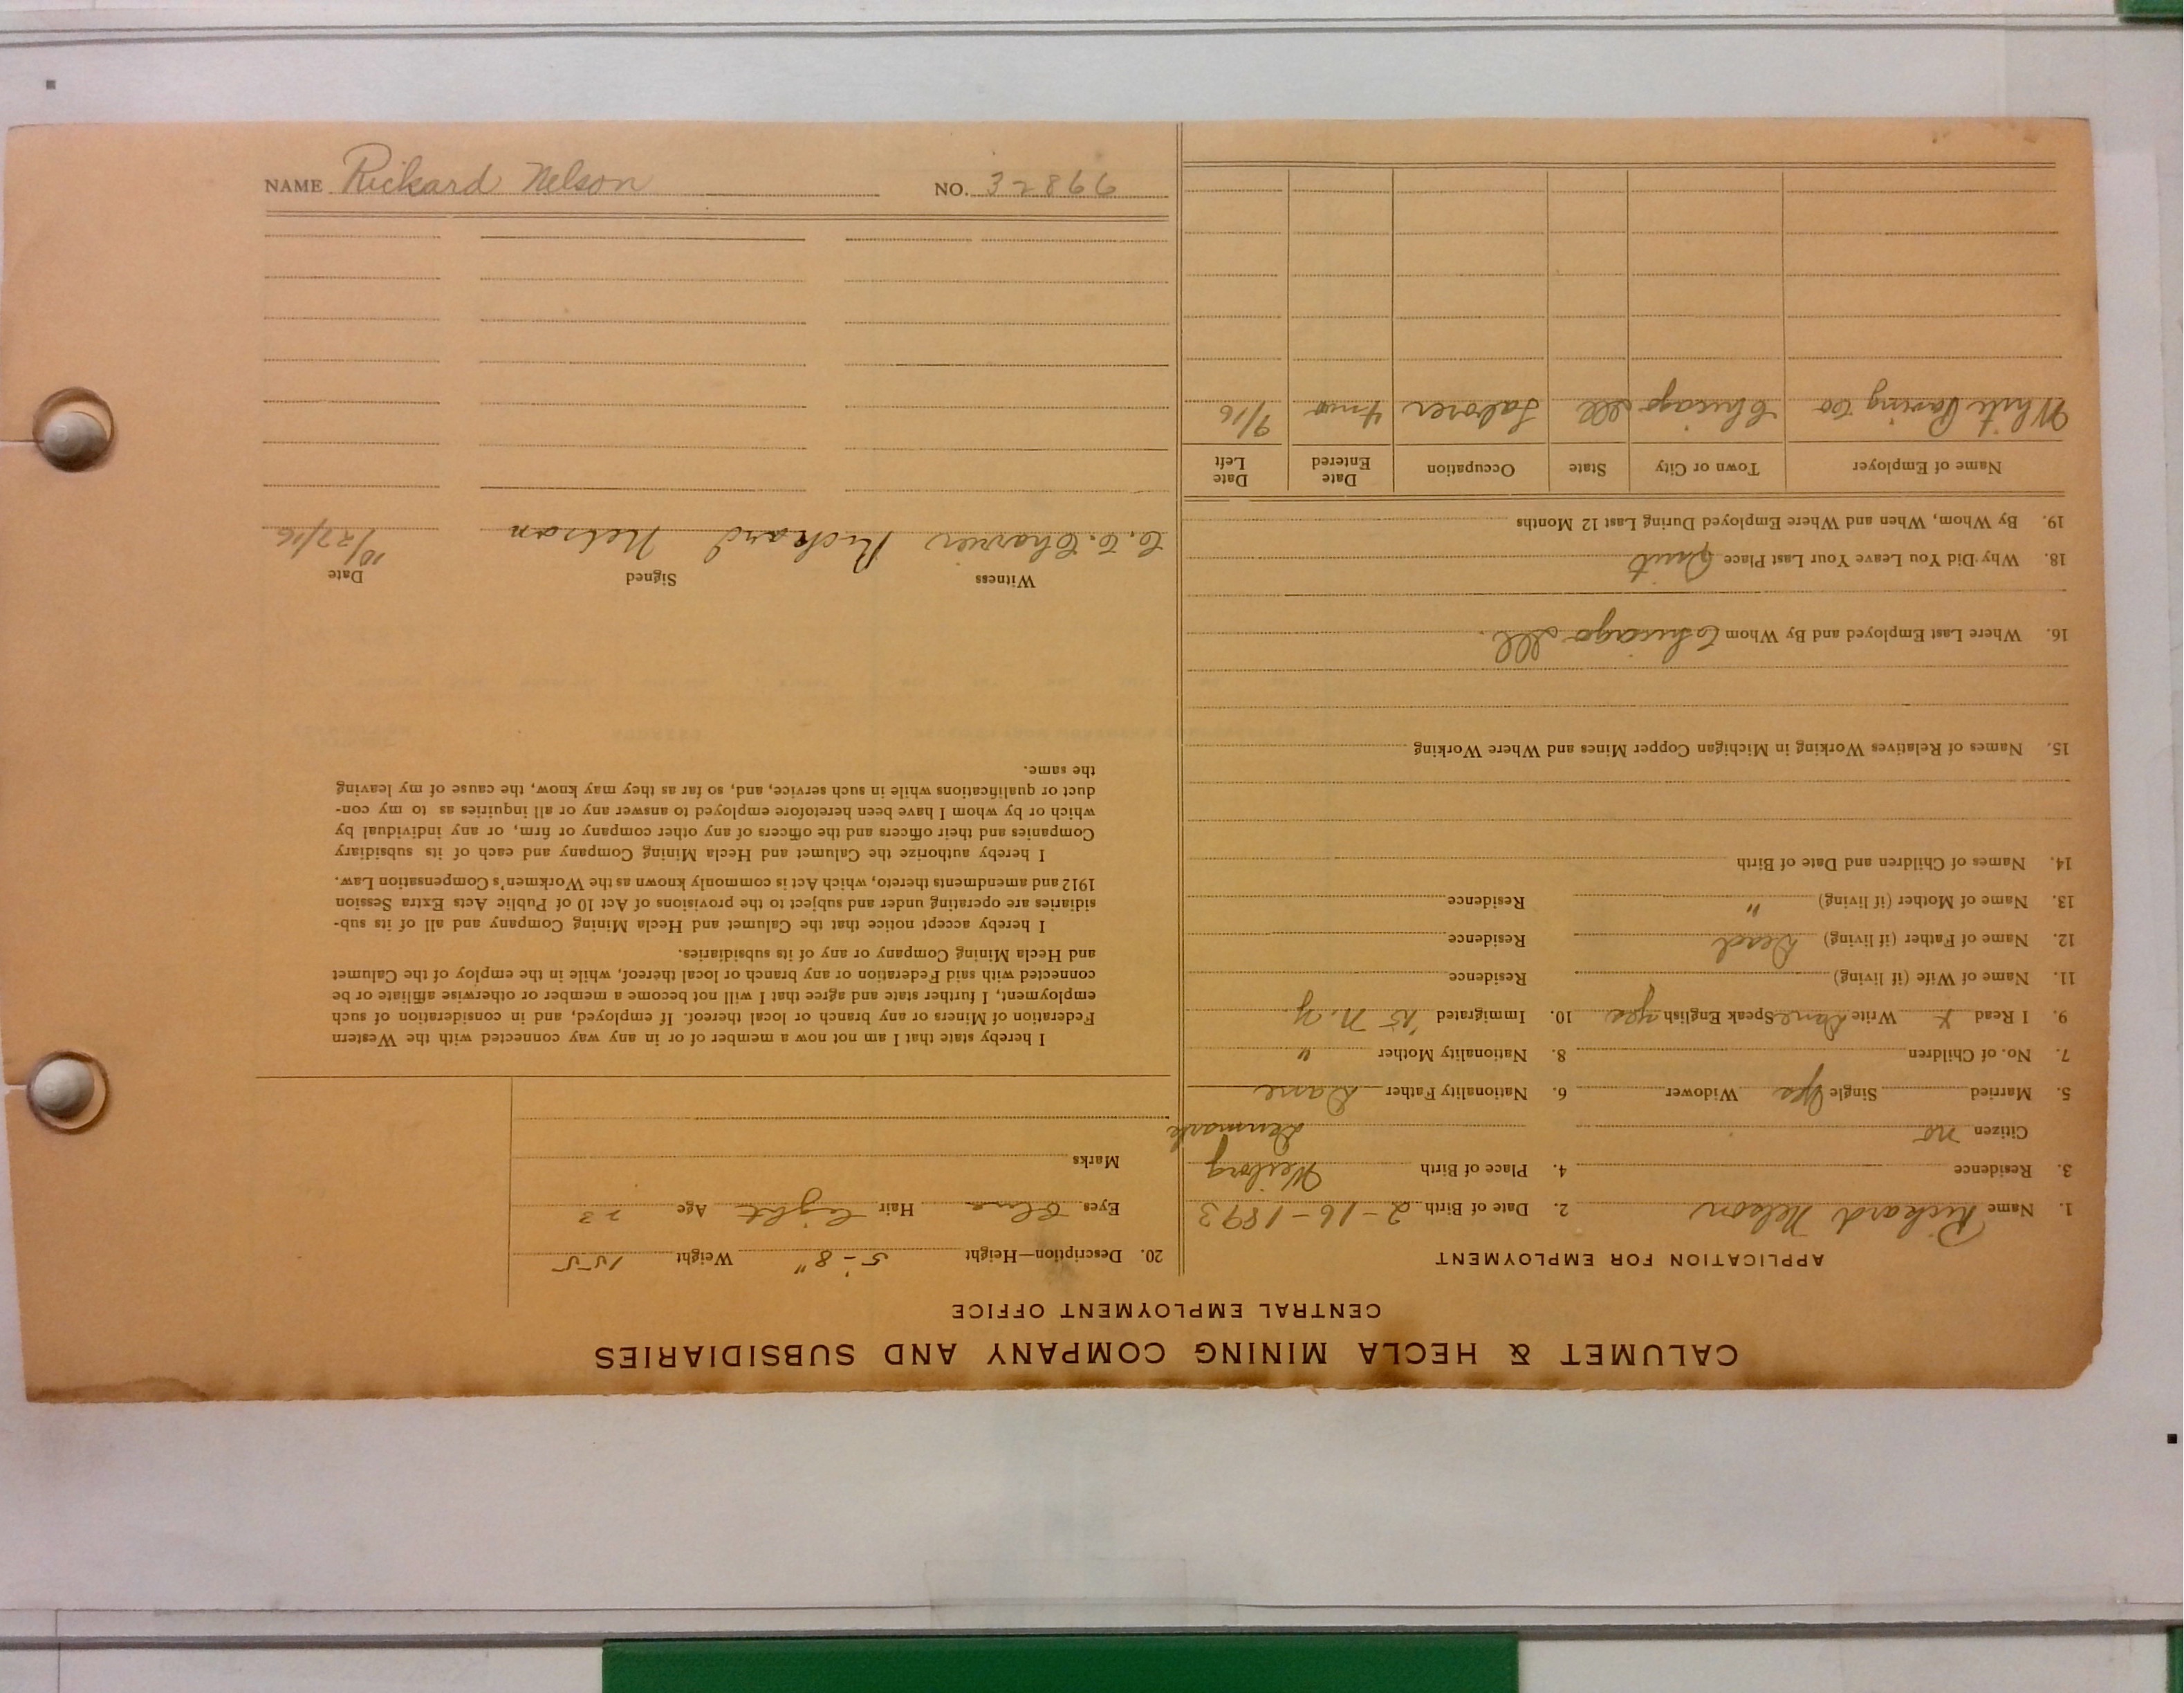 CALUMET & HECLA MINING COMPANY AND SUBSIDIARIES
CENTRAL EMPLOYMENT OFFICE
APPLICATION FOR EMPLOYMENT
1. Name Rickard Nelson 2. Date of Birth 2-16-1893
3. Residence 4. Place of Birth
Citizen no Denmark
5. Married Single Yes Widower 6. Nationality Father Dane
7. No. of Children 8. Nationality Mother "
9. I Read x Write Dane Speak English yes 10. Immigrated '15 N.Y
11. Name of Wife (if living) Residence
12. Name of Father (if living) Dead Residence
13. Name of Mother (if living) " Residence
14. Names of Children and Date of Birth
15. Names of Relatives Working in Michigan Copper Mines and Where Working
16. Where Last Employed and By Whom Chicago Ill.
18. Why Did You Leave Your Last Place Quit
19. By Whom, When and Where Employed During Last 12 Months
Name of Employer Town or City State Occupation Date Entered Date Left
White Paving Co Chicago Ill Laborer 4 mo 9/16
20. Description—Height 5'-8" Weight 155
Eyes Blue Hair Light Age 23
Marks
I hereby state that I am not now a member of or in any way connected with the Western
Federation of Miners or any branch or local thereof. If employed, and in consideration of such
employment, I further state and agree that I will not become a member or otherwise affiliate or be
connected with said Federation or any branch or local thereof, while in the employ of the Calumet
and Hecla Mining Company or any of its subsidiaries.
I hereby accept notice that the Calumet and Hecla Mining Company and all of its sub-
sidiaries are operating under and subject to the provisions of Act 10 of Public Acts Extra Session
1912 and amendments thereto, which Act is commonly known as the Workmen's Compensation Law.
I hereby authorize the Calumet and Hecla Mining Company and each of its subsidiary
Companies and their officers and the officers of any other company or firm, or any individual by
which or by whom I have been heretofore employed to answer any or all inquiries as to my con-
duct or qualifications while in such service, and, so far as they may know, the cause of my leaving
the same.
Witness Signed Date
Rickard Nelson 10/27/16
NAME Rickard Nelson NO. 32866